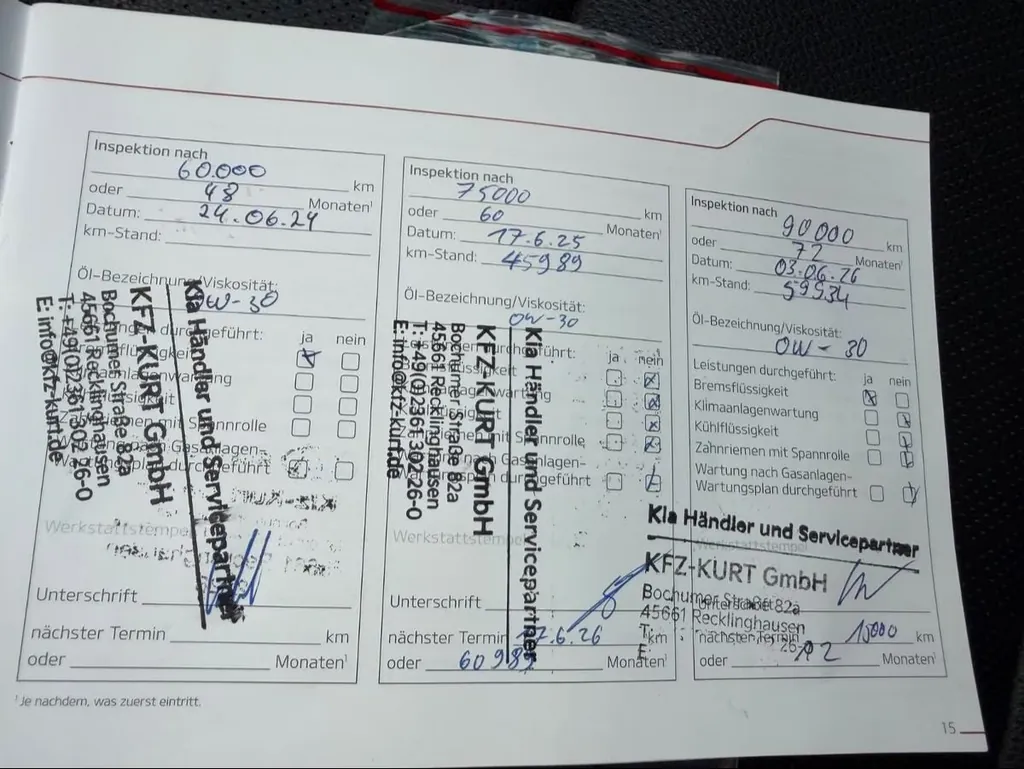 Inspektion nach
60.000 km
oder 48 Monaten¹
Datum: 24.06.24
km-Stand:
Öl-Bezeichnung/Viskosität:
0W-30
ja nein
mit Spannrolle
Gasanlagen-
durchgeführt
Kia Händler und Servicepartner
KFZ-KURT GmbH
Bochumer Straße 82a
45661 Recklinghausen
T: +49(0)2361 302 26-0
E: info@kfz-kurt.de
Werkstattstempel
Unterschrift
nächster Termin km
oder Monaten¹
Inspektion nach
75000 km
oder 60 Monaten¹
Datum: 17.6.25
km-Stand: 45989
Öl-Bezeichnung/Viskosität:
0W-30
durchgeführt:
ja nein
mit Spannrolle
nach Gasanlagen-
durchgeführt
Kia Händler und Servicepartner
KFZ-KURT GmbH
Bochumer Straße 82a
45661 Recklinghausen
T: +49(0)2361 302 26-0
E: info@kfz-kurt.de
Werkstattstempel
Unterschrift
nächster Termin 17.6.26 km
oder 60989 Monaten¹
Inspektion nach
90000 km
oder 72 Monaten¹
Datum: 03.06.26
km-Stand: 59934
Öl-Bezeichnung/Viskosität:
0W-30
Leistungen durchgeführt:
ja nein
Bremsflüssigkeit
Klimaanlagenwartung
Kühlflüssigkeit
Zahnriemen mit Spannrolle
Wartung nach Gasanlagen-
Wartungsplan durchgeführt
Kia Händler und Servicepartner
Werkstattstempel
KFZ-KURT GmbH
Bochumer Straße 82a
Unterschrift
45661 Recklinghausen
T:
nächster Termin 15000 km
26-0
E:
oder 12 Monaten¹
¹ Je nachdem, was zuerst eintritt.
15